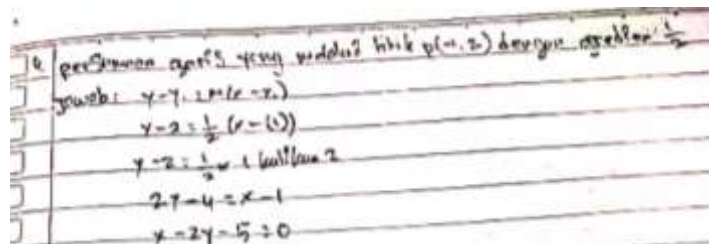 persamaan garis yang melalui titik p(-1, 2) dengan gradien 1/2
Jawab: y-y₁ = m(x-x₁)
y-2 = 1/2 (x-(1))
y-2 = 1/2 x 1 kalikan 2
2y-4 = x-1
x-2y-5 = 0